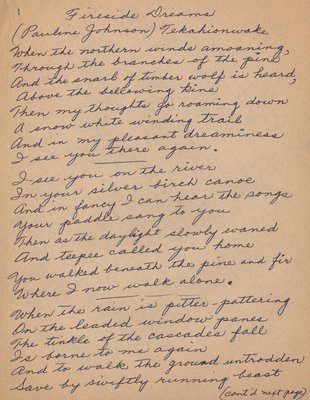 Fireside Dreams
(Pauline Johnson) Tekahionwake
When the northern winds amoaning,
Through the branches of the pine
And the snarl of timber wolf is heard,
Above the bellowing kine
Then my thoughts go roaming down
A snow white winding trail
And in my pleasant dreaminess
I see you there again.
I see you on the river
In your silver birch canoe
And in fancy I can hear the songs
Your paddle sang to you
Then as the daylight slowly waned
And teepee called you home
You walked beneath the pine and fir
Where I now walk alone.
When the rain is pitter-pattering
On the leaded window panes
The tinkle of the cascades fall
Is borne to me again
And to walk the ground untrodden
Save by swiftly running beast
(cont'd next page)